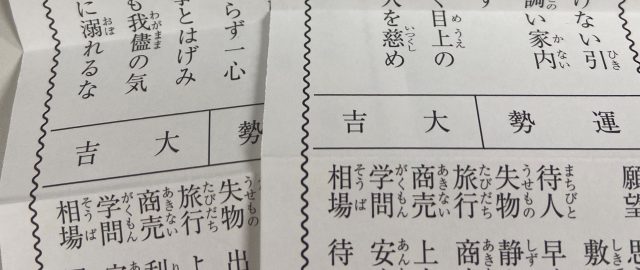 けない引
調い家内
く目上の
人を慈め
運勢
大吉
願望 思
敷
待人 早
失物 静
旅行 商
商売 上
学問 安
相場 待
らず一心
とはげみ
も我儘の気
に溺れるな
勢
大吉
失物 出
旅行 上
商売 利
学問
相場